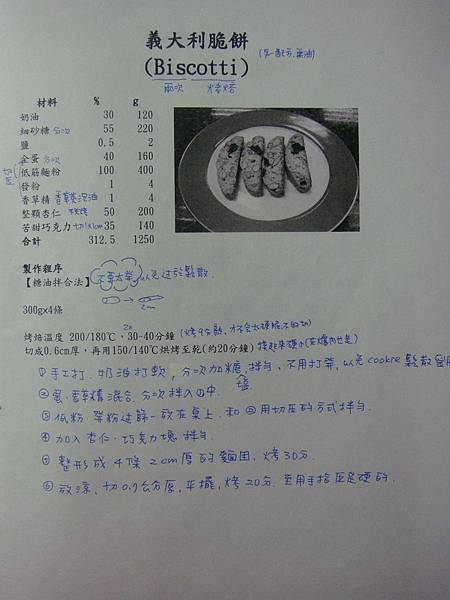 義大利脆餅
(Biscotti)
兩次 烘烤
材料 % g
奶油 30 120
細砂糖 分次 55 220
鹽 0.5 2
全蛋 分次 40 160
低筋麵粉 100 400
發粉 1 4
香草精 1 4
整顆杏仁 50 200
苦甜巧克力 切1x1cm 35 140
合計 312.5 1250
製作程序
【糖油拌合法】 不要太發 以免过於鬆散.
300g×4條
2cm
烤焙溫度 200/180℃,30-40分鐘
切成0.6cm厚,再用150/140℃烘烤至乾(約20分鐘)
① 手工打. 奶油打軟, 分次加糖, 拌勻、不用打發, 以免 cookie 鬆散
鹽
② 蛋.香草精混合. 分次拌入①中.
③ 低粉. 發粉过篩-放在桌上. 和②用切压的方式拌勻.
④ 加入杏仁.巧克力塊 拌勻.
⑤ 整形成 4條 2cm厚的麵團, 烤30分.
⑥ 放涼、切0.7公分厚, 平擺, 烤20分. 至用手指压是硬的.